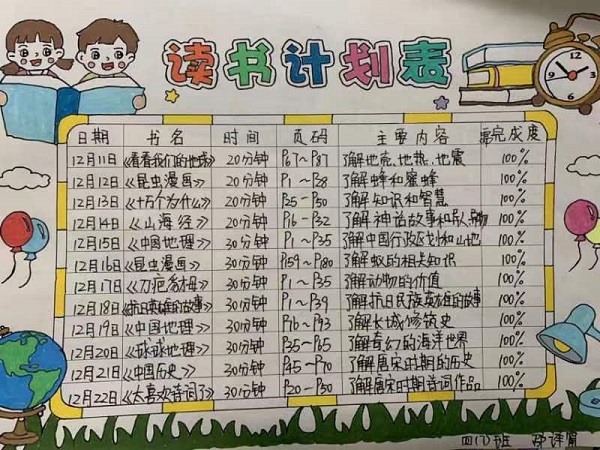 读书计划表
日期 书名 时间 页码 主要内容 完成度
12月11日 《看看我们的地球》 20分钟 P67~P87 了解地壳、地热、地震 100%
12月12日 《昆虫漫画》 20分钟 P1~P28 了解蜂和蜜蜂 100%
12月13日 《十万个为什么》 20分钟 P25~P50 了解知识和智慧 100%
12月14日 《山海经》 20分钟 P16~P32 了解神话故事和人物 100%
12月15日 《中国地理》 30分钟 P1~P35 了解中国行政区划和山地 100%
12月16日 《昆虫漫画》 30分钟 P159~P180 了解蚁的相关知识 100%
12月17日 《刀疤爸母》 30分钟 P1~P35 了解动物的价值 100%
12月18日 《抗日英雄的故事》 30分钟 P1~P39 了解抗日民族英雄的故事 100%
12月19日 《中国地理》 30分钟 P76~P93 了解长城修筑史 100%
12月20日 《球球地理》 30分钟 P35~P65 了解奇幻的海洋世界 100%
12月21日 《中国历史》 30分钟 P45~P70 了解唐宋时期的历史 100%
12月22日 《太喜欢诗词了》 30分钟 P20~P50 了解唐宋时期诗词作品 100%
四(1)班